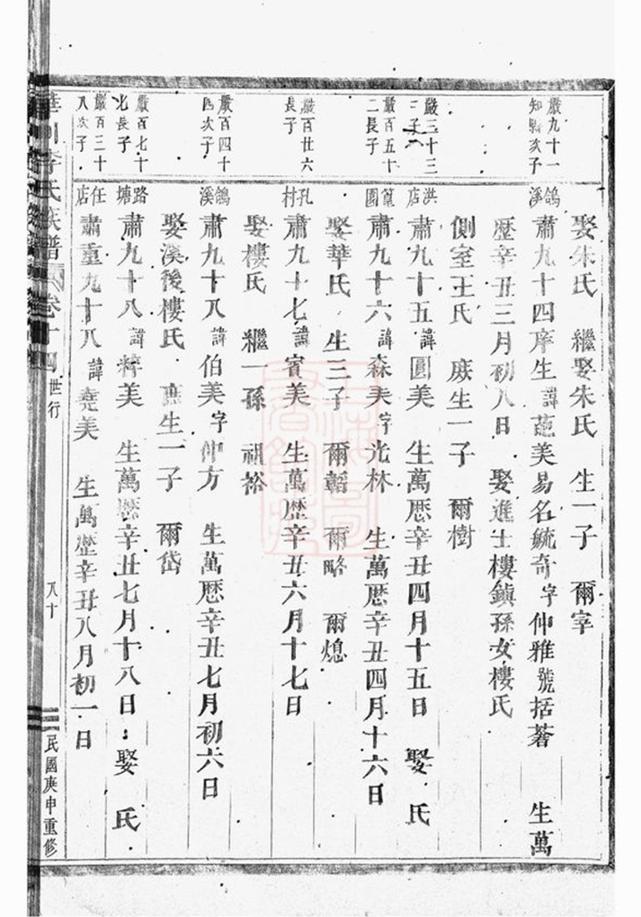 娶朱氏 繼娶朱氏 生一子 爾宰
嚴九十一知縣次子
鴿溪
肅九十四庠生諱葩美易名毓奇字仲雅號括蒼 生萬
歴辛丑三月初八日 娶進士樓鎮孫女樓氏
側室王氏 庻生一子 爾樹
嚴三十三三子
洪店
肅九十五諱圓美 生萬歴辛丑四月十五日 娶 氏
嚴百五十二長子
園
肅九十六諱森美字光林 生萬歴辛丑四月十六日
娶華氏 生三子 爾韜 爾略 爾熜
嚴百廿六長子
孔村
肅九十七諱賓美 生萬歴辛丑六月十七日
娶樓氏 繼一孫 祖裕
嚴百四十四次子
鴿溪
肅九十八諱伯美字仲方 生萬歴辛丑七月初六日
娶溪後樓氏 庻生一子 爾岱
嚴百七十九長子
路塘
肅九十八諱梓美 生萬歴辛丑七月十八日 娶 氏
嚴百三十八次子
任店
肅重九十八諱堯美 生萬歴辛丑八月初一日
李氏族譜 卷十四 世行 八十 民國庚申重修